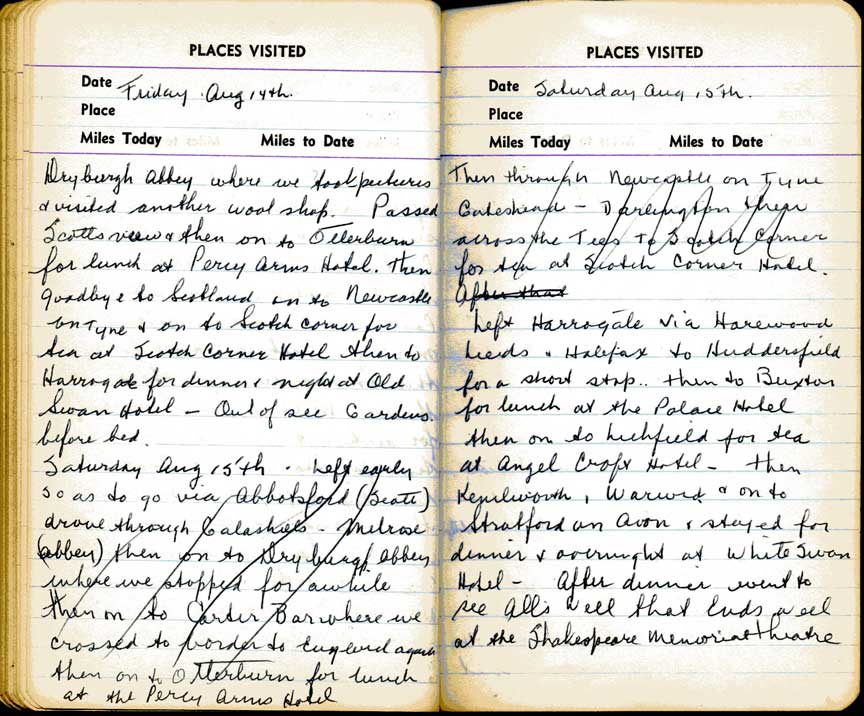 PLACES VISITED
Date Friday Aug 14th.
Place
Miles Today Miles to Date
Dryburgh Abbey where we took pictures
& visited another wool shop. Passed
Scotts view & then on to Otterburn
for lunch at Percy Arms Hotel. Then
goodbye to Scotland on to Newcastle
on Tyne & on to Scotch Corner for
tea at Scotch Corner Hotel then to
Harrogate for dinner & night at Old
Swan Hotel – Out of see Gardens
before bed.
Saturday Aug 15th. Left early
so as to go via Abbotsford (Scott)
drove through Galashiels – Melrose
(Abbey) then on to Dryburgh Abbey
where we stopped for awhile
then on to Carter Bar where we
crossed to border to England again
then on to Otterburn for lunch
at the Percy Arms Hotel
PLACES VISITED
Date Saturday Aug 15th.
Place
Miles Today Miles to Date
Then through Newcastle on Tyne
Gateshead – Darlington then
across the Tees to Scotch Corner
for tea at Scotch Corner Hotel.
After that
Left Harrogate via Harewood
Leeds & Halifax to Huddersfield
for a short stop.. then to Buxton
for lunch at the Palace Hotel
then on to Lichfield for tea
at Angel Croft Hotel – then
Kenilworth, Warwick & on to
Stratford on Avon & stayed for
dinner & overnight at White Swan
Hotel – After dinner went to
see Alls Well that Ends Well
at the Shakespeare Memorial Theatre